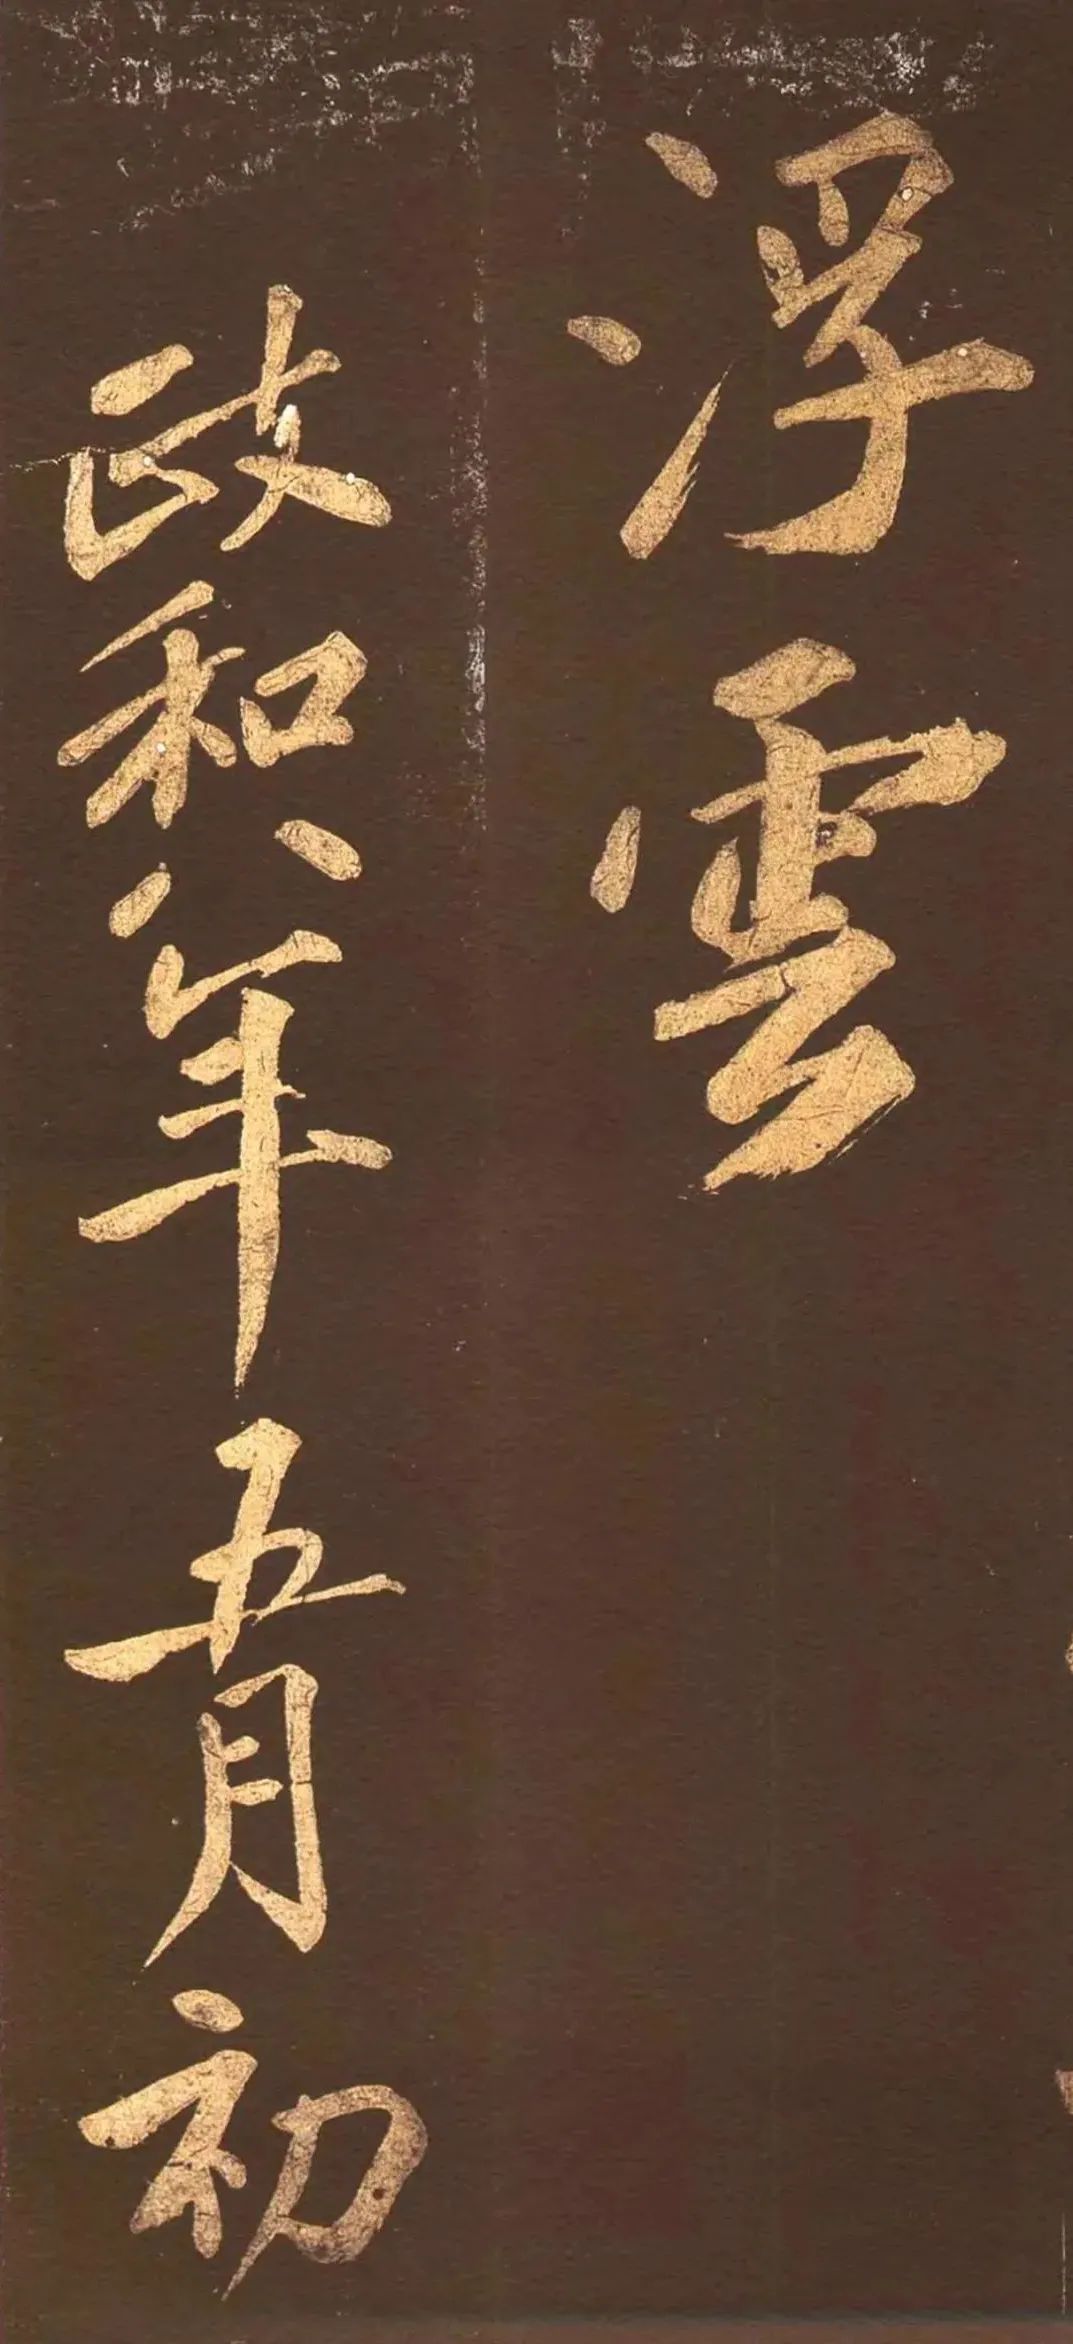 浮雲
政和八年五月初